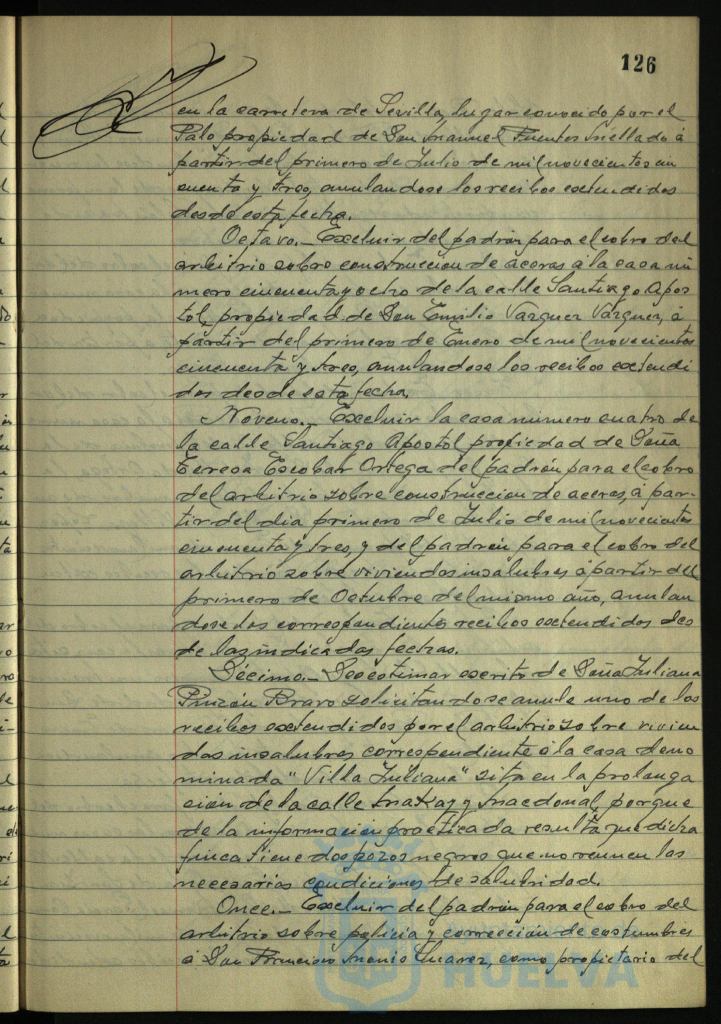 126
en la carretera de Sevilla, lugar conocido por el
Palo propiedad de Don Manuel Fuentes Mellado á
partir del primero de Julio de mil novecientos cin
cuenta y tres, anulandose los recibos extendidos
desde esta fecha.
Octavo.- Excluir del padrón para el cobro del
arbitrio sobre construccion de aceras á la casa nú
mero cincuenta y ocho de la calle Santiago Apos
tol, propiedad de Don Emilio Vazquez Vazquez, á
partir del primero de Enero de mil novecientos
cincuenta y tres, anulandose los recibos extendi
dos desde esta fecha.
Noveno.- Excluir la casa número cuatro de
la calle Santiago Apostol propiedad de Doña
Teresa Escobar Ortega del padrón para el cobro
del arbitrio sobre construccion de aceras, á par-
tir del dia primero de Julio de mil novecientos
cincuenta y tres, y del padrón para el cobro del
arbitrio sobre viviendas insalubres á partir del
primero de Octubre del mismo año, anulan
dose los correspondientes recibos extendidos des
de las indicadas fechas.
Décimo.- Desestimar escrito de Doña Juliana
Pinzón Bravo solicitando se anule uno de los
recibos extendidos por el arbitrio sobre vivien
das insalubres correspondiente á la casa deno
minada "Villa Juliana" sita en la prolonga
ción de la calle y Macdonal, porque
de la información practicada resulta que dicha
finca tiene dos pozos negros que no reunen las
necesarias condiciones de salubridad.
Once.- Excluir del padrón para el cobro del
arbitrio sobre policia y corrección de costumbres
á Don Suarez, como propietario del
HUELVA